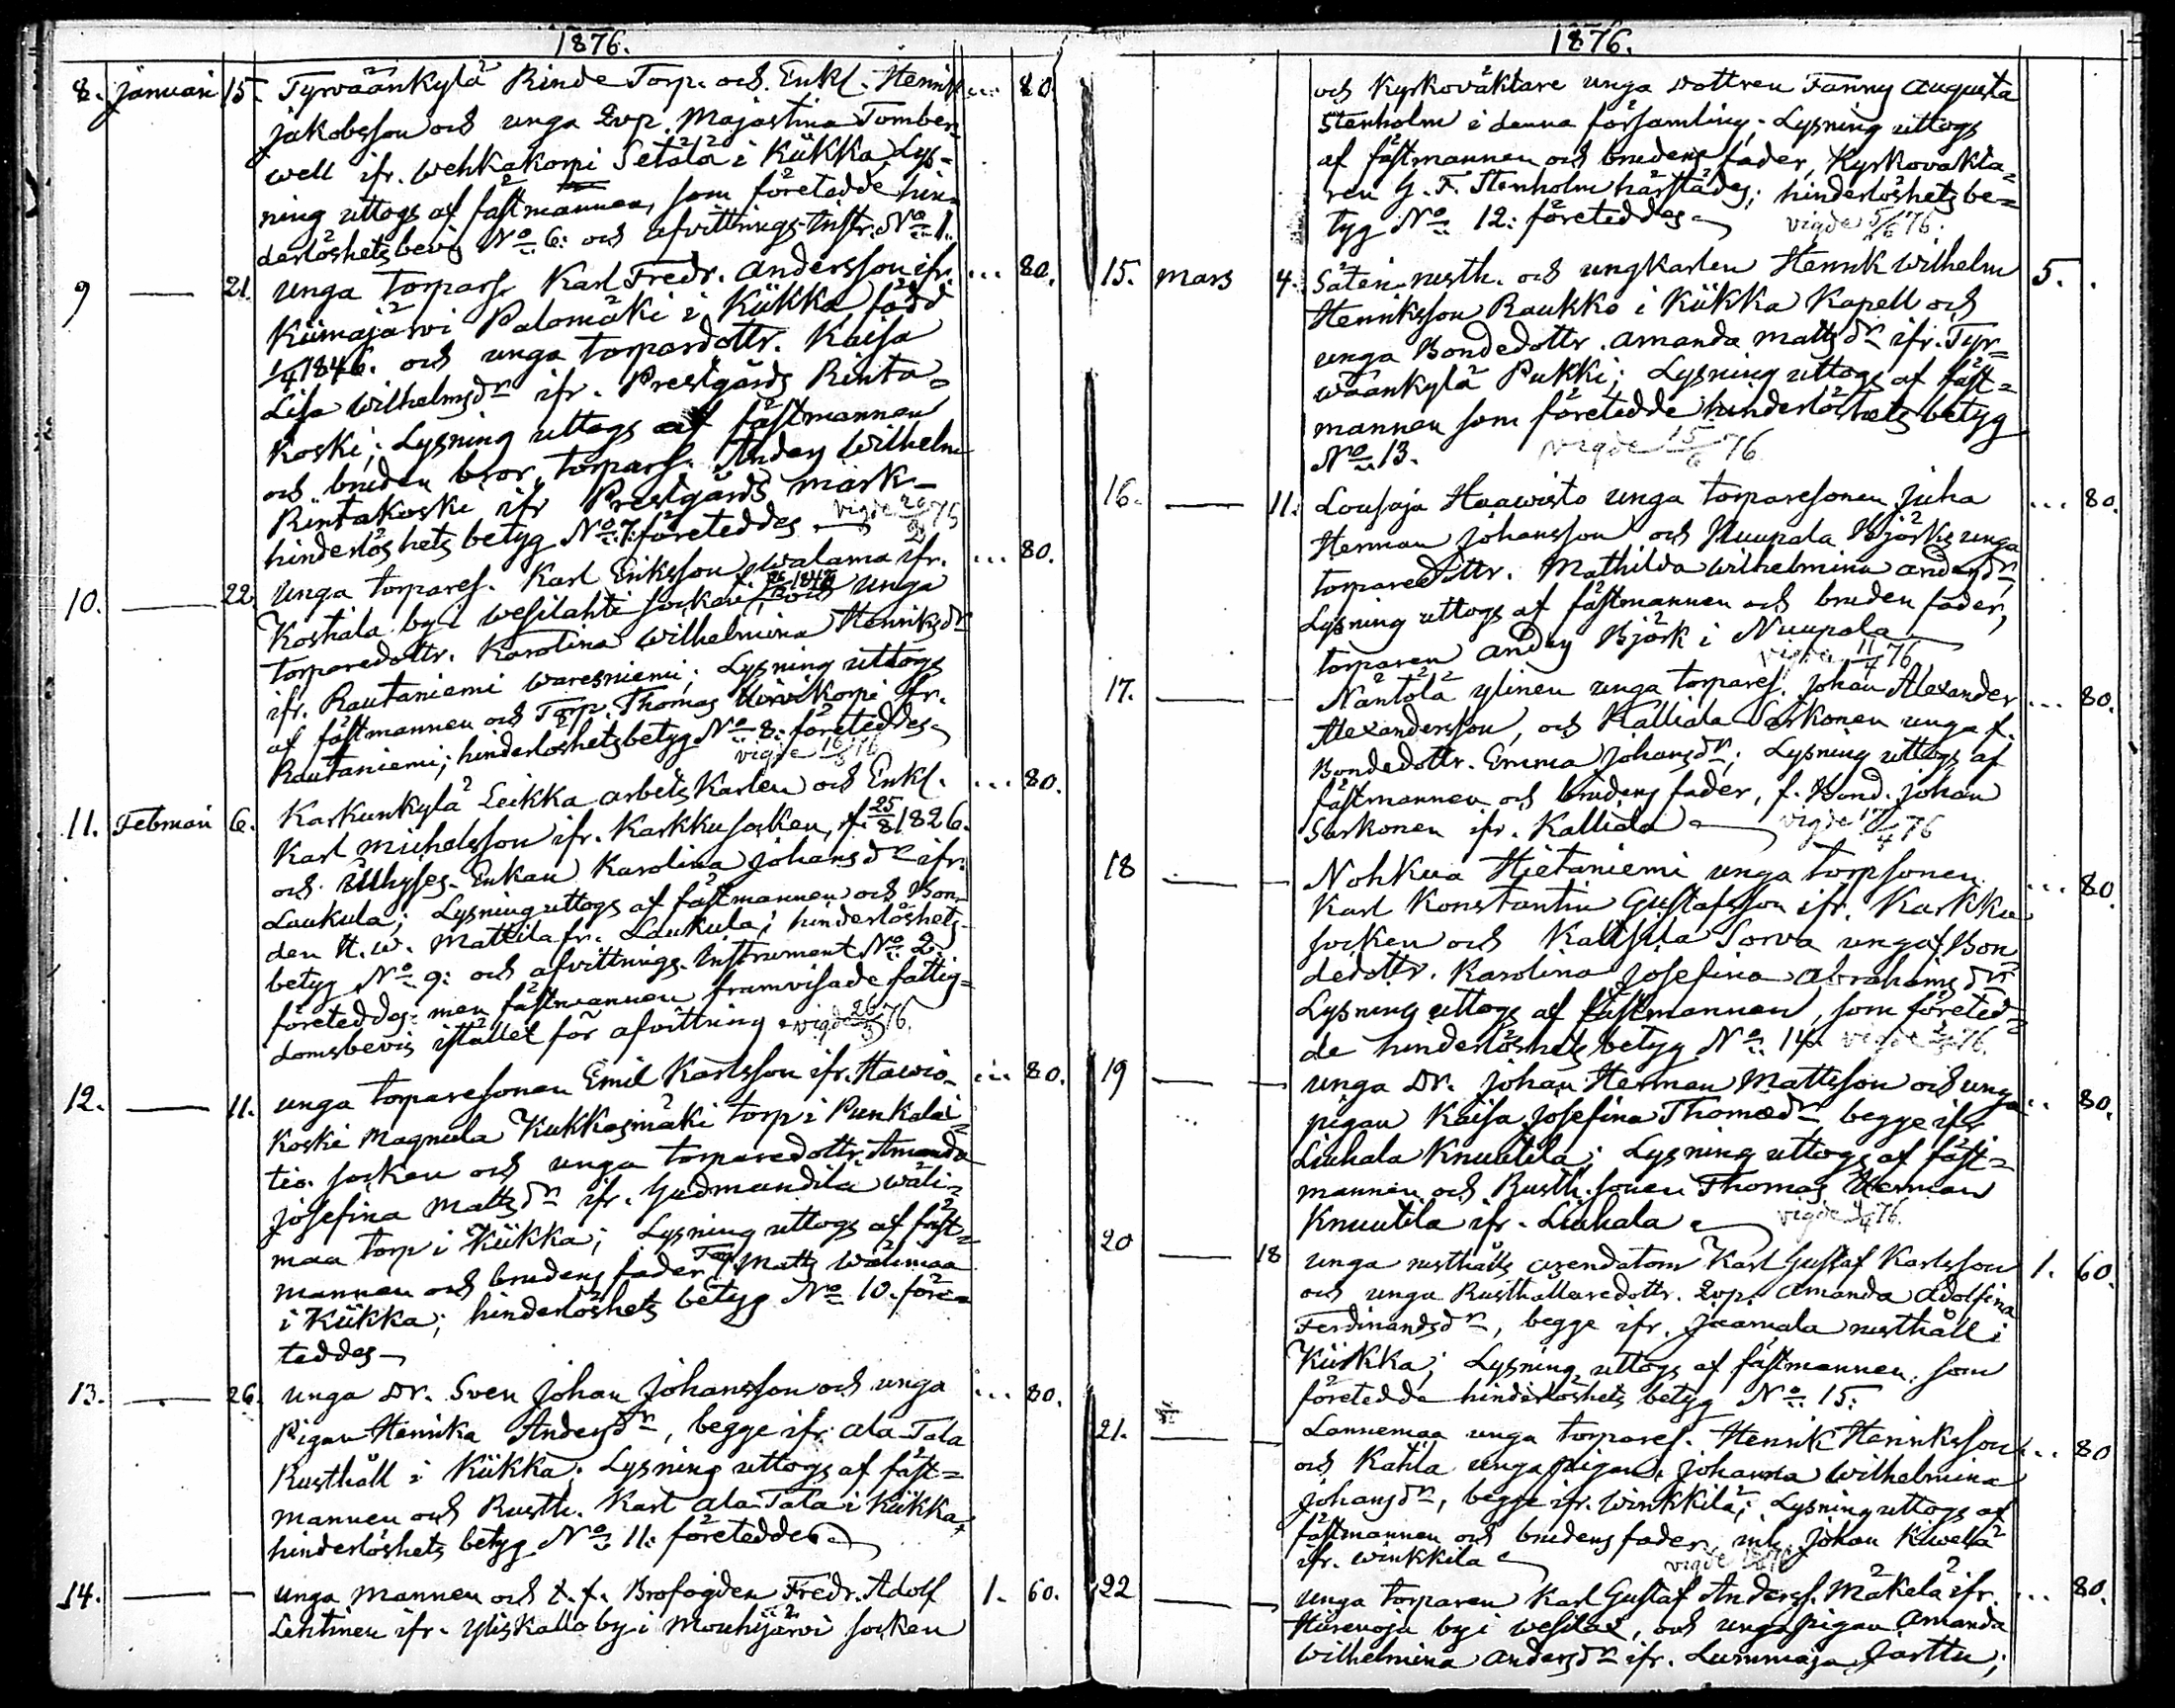 1876.
8. Januari 15. Tyrväänkylä Rinde Torp. och Enkl. Henrik ... 80.
Jakobsson och unga 2vp. Majastina Tomber-
well ifr. Wehkakorpi Setälä i Kiikka, Lys-
ning uttogs af fästmannen, som företedde hin-
derlöshets bevis No 6: och afvittrings-Instr: No 1.
9 — 21. unga torpars. Karl Fredr. Andersson ifr. ... 80.
Kiimajärvi Palomäki i Kiikka född
1/4 1846. och unga torpardottr. Kaisa
Lisa Wilhelmsdr ifr. Prestgårds Rinta-
koski; Lysning uttogs af fästmannen
och bruden bror, torpars. Anders Wilhelm
Rintakoski ifr Prestgårds mark-
hinderlöshets betyg No 7: företeddes — vigde
10. — 22. unga torpares. Karl Eriksson Walama ifr. ... 80.
Koskala by i Wesilahti socken f. 1842 och unga
torparedottr. Karolina Wilhelmina Henriksdr
ifr. Rautaniemi Waresniemi; Lysning uttogs
af fästmannen och Torp. Thomas Hirvikorpi ifr.
Rautaniemi; hinderlöshetsbetyg No 8: företeddes
vigde 16/76
11. Februari 6. Karkunkylä Leikka arbetskarlen och Enkl. ... 80.
Karl Michelsson ifr. Karkku socken, f. 25/8 1826.
och Inhyses-Enkan Karolina Johansdr ifr.
Laukula; Lysning uttogs af fästmannen och Bon-
den H. W. Mattila fr. Laukula; hinderlöshets-
betyg No 9: och afvittrings-Instrument No 2:
företeddes: men fästmannen framvisade fattig-
domsbevis istället för afvittring. vigde 26/3 76.
12. — 11. unga torparesonen Emil Karlsson ifr. Hawio- ... 80.
koski Magnula Kukkasmäki torp i Punkalai-
tio socken och unga torparedottr. Amanda
Josefina Mattsdr ifr. Gudmundila Wäli-
maa torp i Kiikka; Lysning uttogs af fäst-
mannen och brudens fader Torp Matts Wälimaa
i Kiikka; hinderlöshets betyg No 10. före-
teddes —
13. — 26. unga Dr. Sven Johan Johansson och unga ... 80.
Pigan Henrika Andersdr, begge ifr. Ala Tala
Rusthåll i Kiikka. Lysning uttogs af fäst-
mannen och Rusth. Karl Ala Tala i Kiikka,
hinderlöshets betyg No 11: företeddes.
14. — — unga mannen och t. f. Brofogden Fredr. Adolf 1. 60.
Lehtinen ifr. Yliskallo by i Mouhijärvi socken
1876.
och Kyrkoväktare unga dottren Fanny Augusta
Stenholm i denna församling; Lysning uttogs
af fästmannen och brudens fader, Kyrkovakta-
ren G. F. Stenholm härstädes; hinderlöshets be-
tyg No 12: företeddes — vigde 5/6 76.
15. Mars 4. Säteri rusth. och ungkarlen Henrik Wilhelm 5. .
Henriksson Raukko i Kiikka Kapell och
unga Bondedottr. Amanda Mattsdr ifr. Tyr-
wäänkylä Pukki; Lysning uttogs af fäst-
mannen som företedde hinderlöshets betyg
No 13. vigde 15/6 76
16. — 11. Lousaja Haawisto unga torparesonen Juha ... 80.
Herman Johansson och Nuupala Björks unga
torparedottr. Mathilda Wilhelmina Andersdr,
Lysning uttogs af fästmannen och bruden fader,
torparen Anders Björk i Nuupala —
vigde 11/4 76
17. — — Näntölä Ylinen unga torpares. Johan Alexander ... 80.
Alexandersson, och Kalliala Sarkonen unga f.
Bondedottr. Emma Johansdr; Lysning uttogs af
fästmannen och brudens fader, f. Bond. Johan
Sarkonen ifr. Kalliala — vigde 17/4 76
18 — — Nohkua Hietaniemi unga torpsonen ... 80.
Karl Konstantin Gustafsson ifr. Karkku
socken och Kaltsila Sorva unga f. Bon-
dedottr. Karolina Josefina Abrahamsdr
Lysning uttogs af fästmannen, som företed-
de hinderlöshets betyg No 14. vigde 76.
19 — — unga Dr. Johan Herman Mattsson och unga ... 80.
pigan Kaisa Josefina Thomædr begge ifr
Liuhala Knuutila; Lysning uttogs af fäst-
mannen och Rusth. sonen Thomas Herman
Knuutila ifr. Liuhala — vigde 76.
20 — 18 unga rusthålls arendatorn Karl Gustaf Karlsson 1. 60.
och unga Rusthållaredottr. 2vp. Amanda Adolfina
Ferdinandsdr, begge ifr. Jaamala rusthåll i
Kiikka; Lysning uttogs af fästmannen, som
företedde hinderlöshets betyg No 15:
21. — — Lannemaa unga torpares. Henrik Henriksson ... 80
och Katila unga pigan, Johanna Wilhelmina
Johansdr, begge ifr. Winkkilä; Lysning uttogs af
fästmannen och brudens fader, inh. Johan Kiwelä
ifr. Winkkilä — vigde
22 — — unga torparen Karl Gustaf Anderss. Mäkelä ifr. ... 80.
Hurenoja by i Wesilax, och unga pigan Amanda
Wilhelmina Andersdr ifr. Lummaja Jarttu;